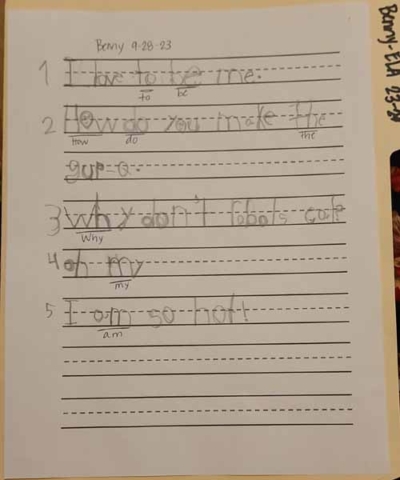 Benny 9-28-23
1 I love to be me.
to be
2 How do you make the
how do the
gup=Q.
3 Why don't robots
Why
4 oh my
my
5 I am so hott
am
Benny-ELA